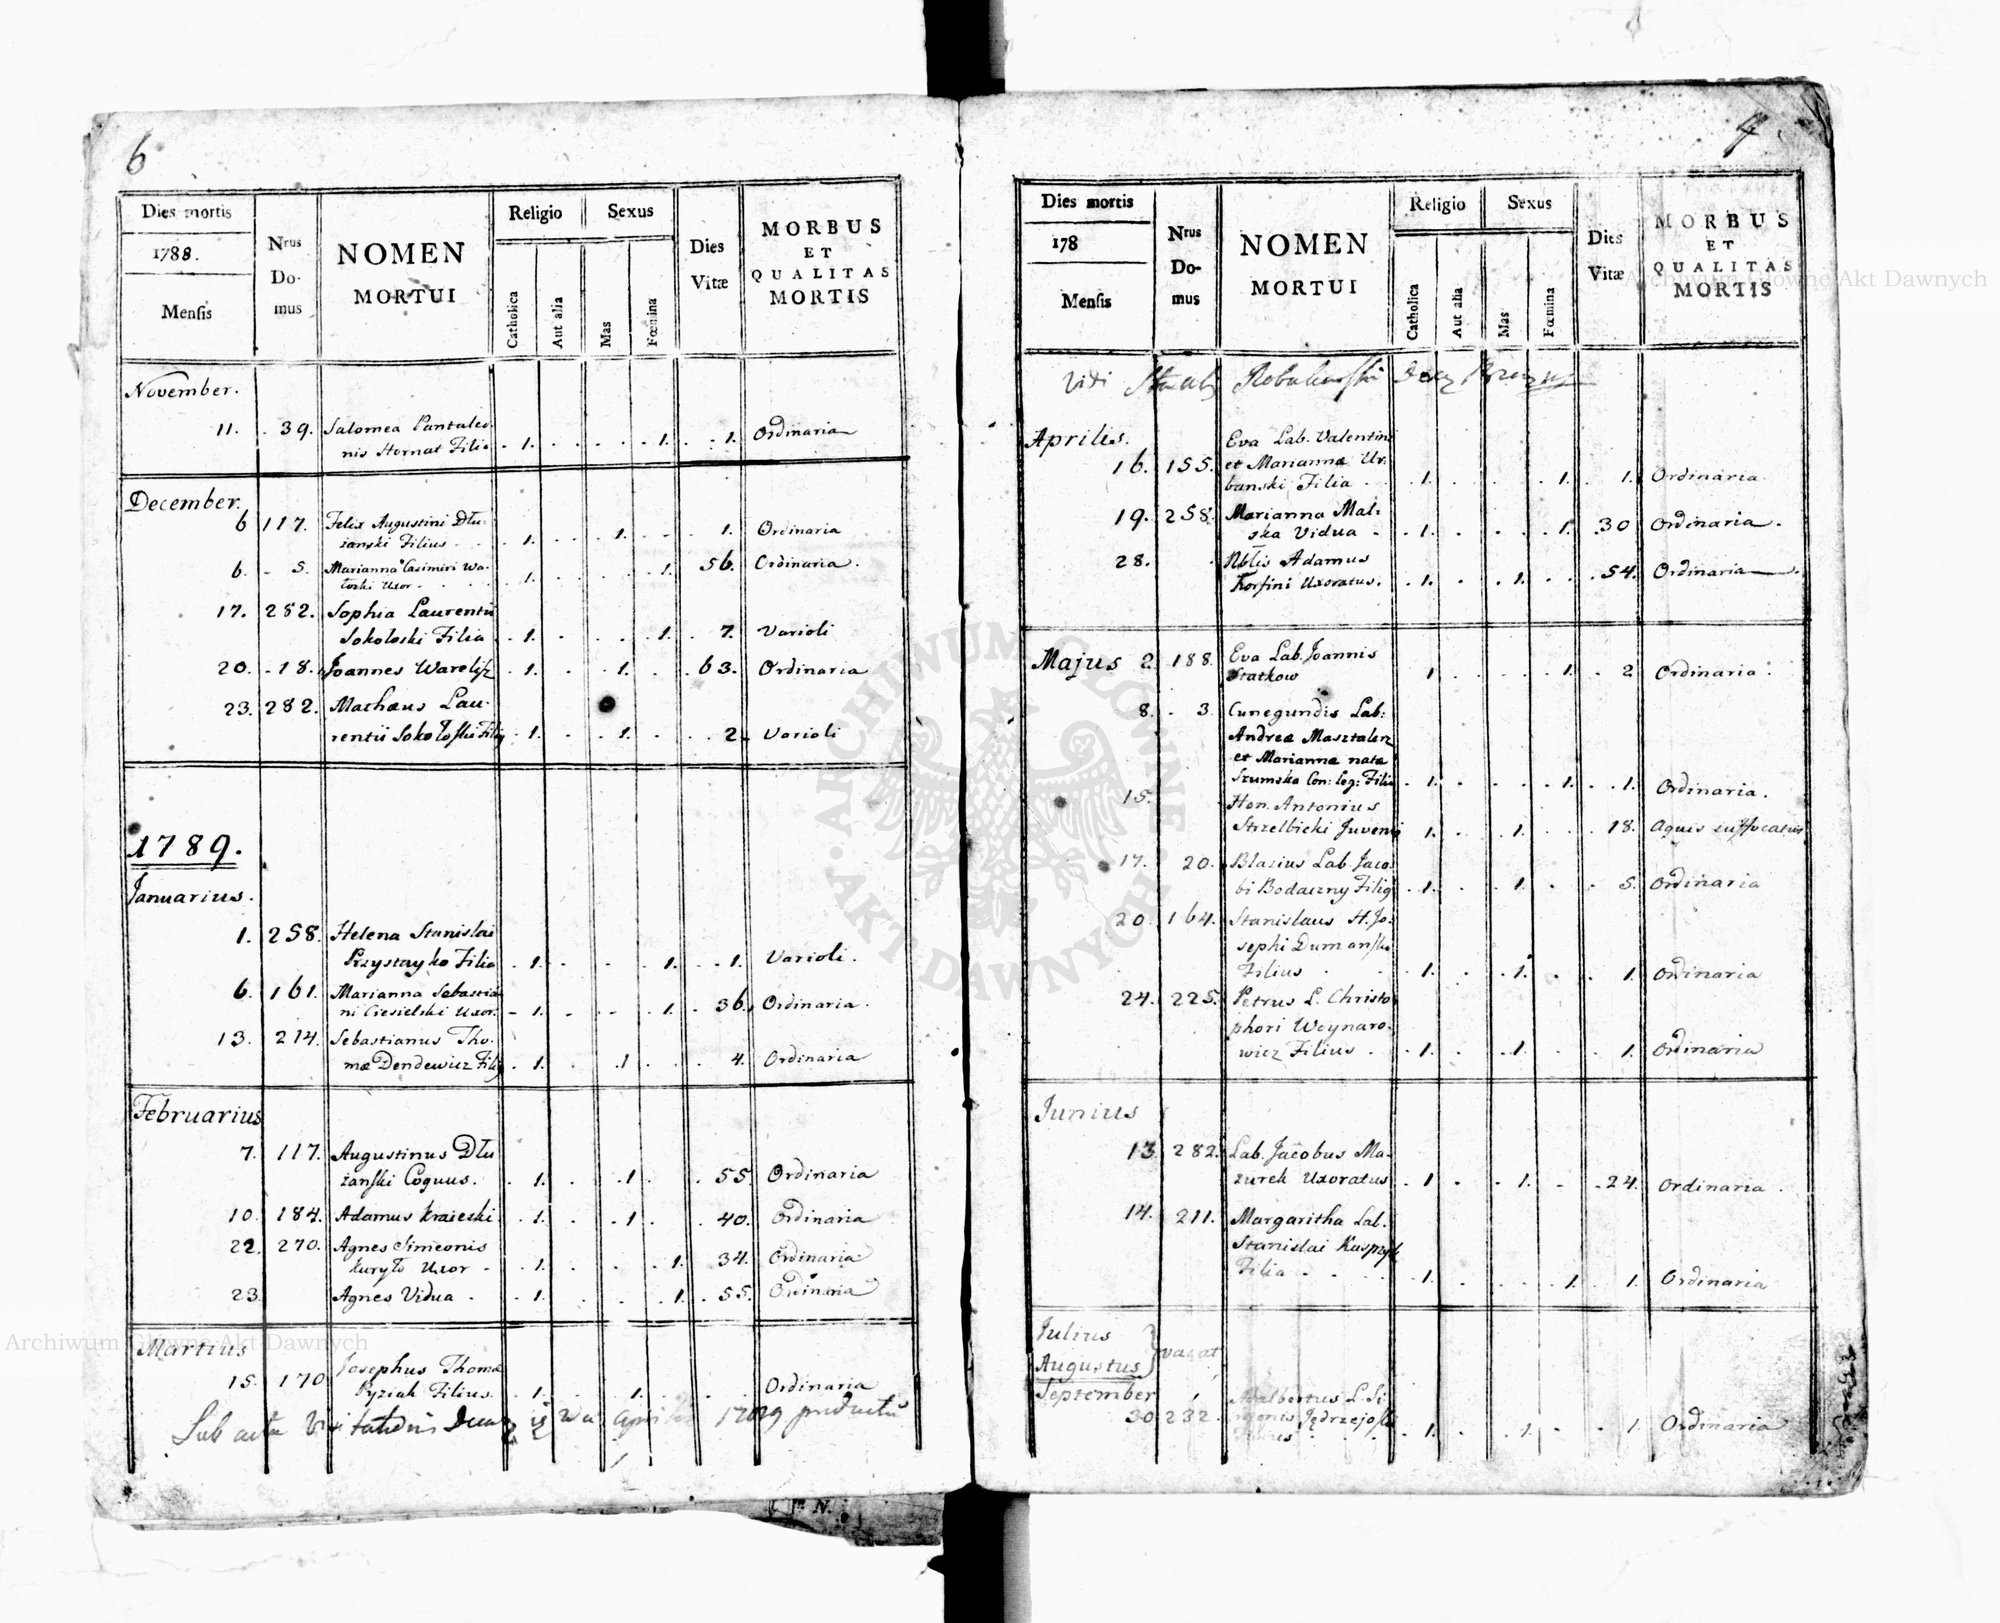 6
Dies mortis
1788.
Mensis
Nrus Domus
NOMEN MORTUI
Religio
Catholica
Aut alia
Sexus
Mas
Fœmina
Dies Vitæ
MORBUS ET QUALITAS MORTIS
November.
11. 39. Salomea Pantaleo-
nis Hornat Filia 1. 1. 1. Ordinaria
December.
6 117. Felix Augustini Dłu-
żanski Filius 1. 1. 1. Ordinaria
6. 5. Marianna Casimiri Wa-
łoski Uxor 1. 1. 56. Ordinaria.
17. 282. Sophia Laurentii
Sokoloski Filia 1. 1. 7. Varioli
20. 18. Joannes Warolisz 1. 1. 63. Ordinaria
23. 282. Mathæus Lau-
rentii Sokołoski Filiq 1. 1. 2. Varioli
1789.
Januarius.
1. 258. Helena Stanislai
Przystayko Filia 1. 1. 1. Varioli.
6. 161. Marianna Sebastia-
ni Ciesielski Uxor. 1. 1. 36. Ordinaria.
13. 214. Sebastianus Tho-
mæ Dendewicz Filiq 1. 1 4. Ordinaria
Februarius
7. 117. Augustinus Dłu
żanski Coquus. 1. 1. 55. Ordinaria
10. 184. Adamus Kraieski 1. 1. 40. Ordinaria
22. 270. Agnes Simeonis
Kuryło Uxor 1. 1. 34. Ordinaria
23 Agnes Vidua 1. 1. 55. Ordinaria
Martius
15. 170 Josephus Thomæ
Pyziak Filius. 1. 1. Ordinaria
Sub actu Visitationis
7.
Dies mortis
178
Mensis
Nrus Domus
NOMEN MORTUI
Religio
Catholica
Aut alia
Sexus
Mas
Fœmina
Dies Vitæ
MORBUS ET QUALITAS MORTIS
Vidi
Aprilis.
16. 155. Eva Lab. Valentini
et Marianna Ur-
banski Filia 1. 1. 1. Ordinaria.
19. 258. Marianna Mal-
ska Vidua 1. 1. 30 Ordinaria.
28. Nblis Adamus
Korsini Uxoratus. 1. 1. 54. Ordinaria
Majus 2. 188. Eva Lab. Joannis
Statkow 1 1. 2 Ordinaria.
8. 3. Cunegundis Lab:
Andreæ Masztalerz
et Marianna nata
Szumska Con: Leg: Filia 1. 1. 1. Ordinaria.
15. Hon. Antonius
Strzelbicki Juvenis 1. 1. 18. Aquis suffocatus
17. 20. Blasius Lab. Jaco-
bi Bodaczny Filiq 1. 1. 5. Ordinaria
20. 164. Stanislaus H. Jo-
sephi Dumanski
Filius 1. 1. 1. Ordinaria
24. 225. Petrus L. Christo
phori Weynaro-
wicz Filius 1. 1. 1. Ordinaria
Junius
13 282. Lab. Jacobus Ma-
zurek Uxoratus 1 1. 24. Ordinaria.
14. 211. Margaritha Lab.
Stanislai Kasprzyk
Filia 1. 1. 1. Ordinaria
Julius
Augustus } vacat
September
30 232. Adalbertus L. Si-
monis Jędrzejoski
Filius 1. 1. 1. Ordinaria
Archiwum Główne Akt Dawnych
Archiwum Główne Akt Dawnych
ARCHIWUM GŁÓWNE · AKT DAWNYCH ·